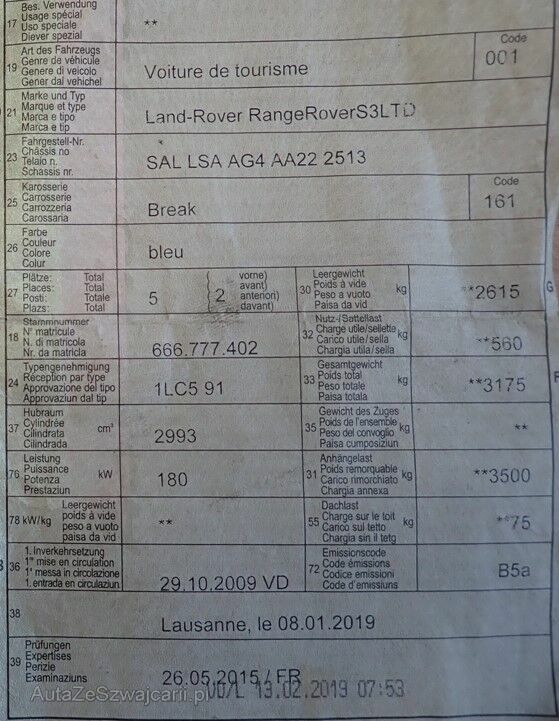 Bes. Verwendung
17 Usage spécial
Uso speciale **
Diever spezial
Art des Fahrzeugs Code
19 Genre de véhicule Voiture de tourisme 001
Genere di veicolo
Gener dal vehichel
Marke und Typ
21 Marque et type Land-Rover RangeRoverS3LTD
Marca e tipo
Marca e tip
Fahrgestell-Nr.
23 Châssis no SAL LSA AG4 AA22 2513
Telaio n.
Schassis nr.
Karosserie Code
25 Carrosserie Break 161
Carrozzeria
Carossaria
Farbe
26 Couleur bleu
Colore
Colur
Plätze: Total vorne) Leergewicht
27 Places: Total 5 ( 2 avant) 30 Poids à vide kg **2615
Posti: Totale anteriori) Peso a vuoto
Plazs: Total davant) Paisa da vid
Stammnummer Nutz-/Sattellast
18 N° matricule 666.777.402 32 Charge utile/sellette kg **560
N. di matricola Carico utile/sella
Nr. da matricla Chargia utila/sella
Typengenehmigung Gesamtgewicht
24 Réception par type 1LC5 91 33 Poids total kg **3175
Approvazione del tipo Peso totale
Approvaziun dal tip Paisa totala
Hubraum Gewicht des Zuges
37 Cylindrée cm³ 2993 35 Poids de l'ensemble kg **
Cilindrata Peso del convoglio
Cilindrada Paisa cumposiziun
Leistung Anhängelast
76 Puissance kW 180 31 Poids remorquable kg **3500
Potenza Carico rimorchiato
Prestaziun Chargia annexa
Leergewicht Dachlast
78 kW/kg poids à vide ** 55 Charge sur le toit kg **75
peso a vuoto Carico sul tetto
paisa da vid Chargia sin il tetg
1. Inverkehrsetzung Emissionscode
36 1re mise en circulation 29.10.2009 VD 72 Code émissions B5a
1a messa in circolazione Codice emissioni
1. entrada en circulaziun Code d'emissiuns
38 Lausanne, le 08.01.2019
Prüfungen
39 Expertises
Perizie 26.05.2015 / FR
Examinaziuns VD/L 13.02.2019 07:53
AutaZeSzwajcarii.pl